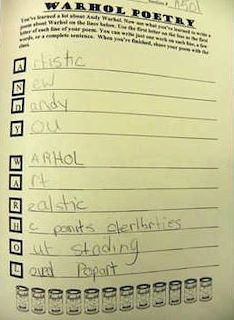 WARHOL POETRY
You've learned a lot about Andy Warhol. Now use what you've learned to write a
poem about Warhol on the lines below. Use the first letter on the line as the first
letter of each line of your poem. You can write just one word on each line, a few
words, or a complete sentence. When you're finished, share your poem with the
class.
A rtistic
N ew
D andy
Y ou
W ARHOL
A rt
R ealstic
H
O ut stading
L